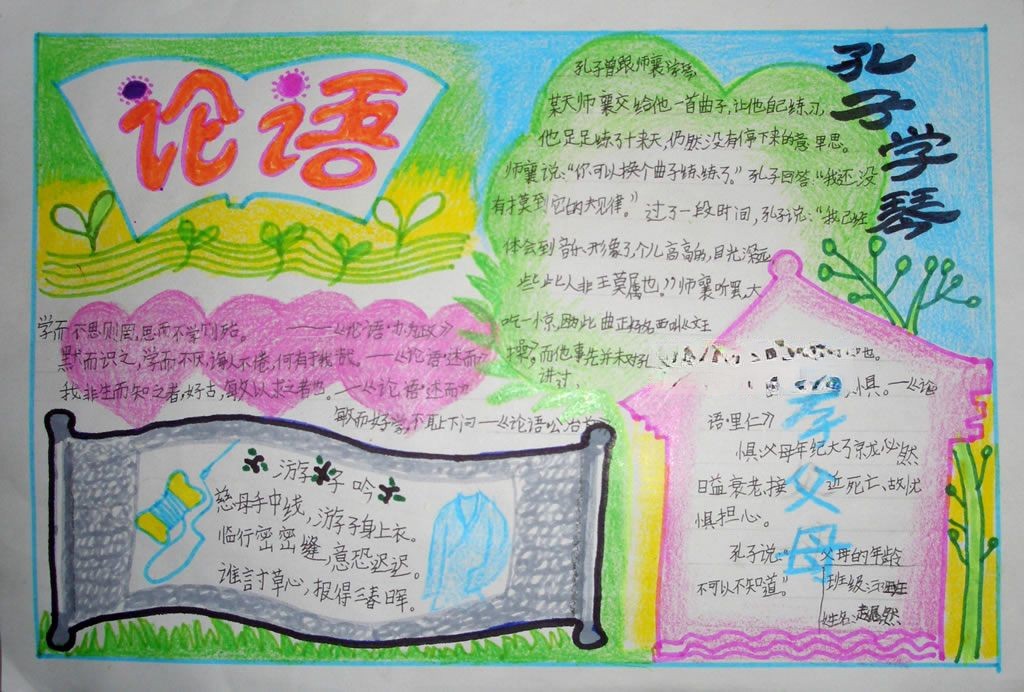 论语
孔子学琴
孔子曾跟师襄学琴,
某天师襄交给他一首曲子,让他自己练习,
他足足练了十来天,仍然没有停下来的意思。
师襄说:“你可以换个曲子练练了。”孔子回答:“我还没
有摸到它的大规律。”过了一段时间,孔子说:“我已经
体会到音乐形象了,个儿高高的,目光深远,
此人非王莫属也。”师襄听罢,大
吃一惊,因此曲正好名叫《文王
操》。而他事先并未对孔
讲过,
学而不思则罔,思而不学则殆。——《论语·为政》
默而识之,学而不厌,诲人不倦,何有于我哉。——《论语·述而》
我非生而知之者,好古,敏以求之者也。——《论语·述而》
敏而好学,不耻下问——《论语·公冶长
游子吟
慈母手中线,游子身上衣。
临行密密缝,意恐迟迟。
谁言寸草心,报得三春晖。
孝父母
也。
惧。——《论
语·里仁》
惧:父母年纪大了就必然
日益衰老接近死亡,故忧
惧担心。
孔子说:“父母的年龄
不可以不知道。”
班级:班
姓名: